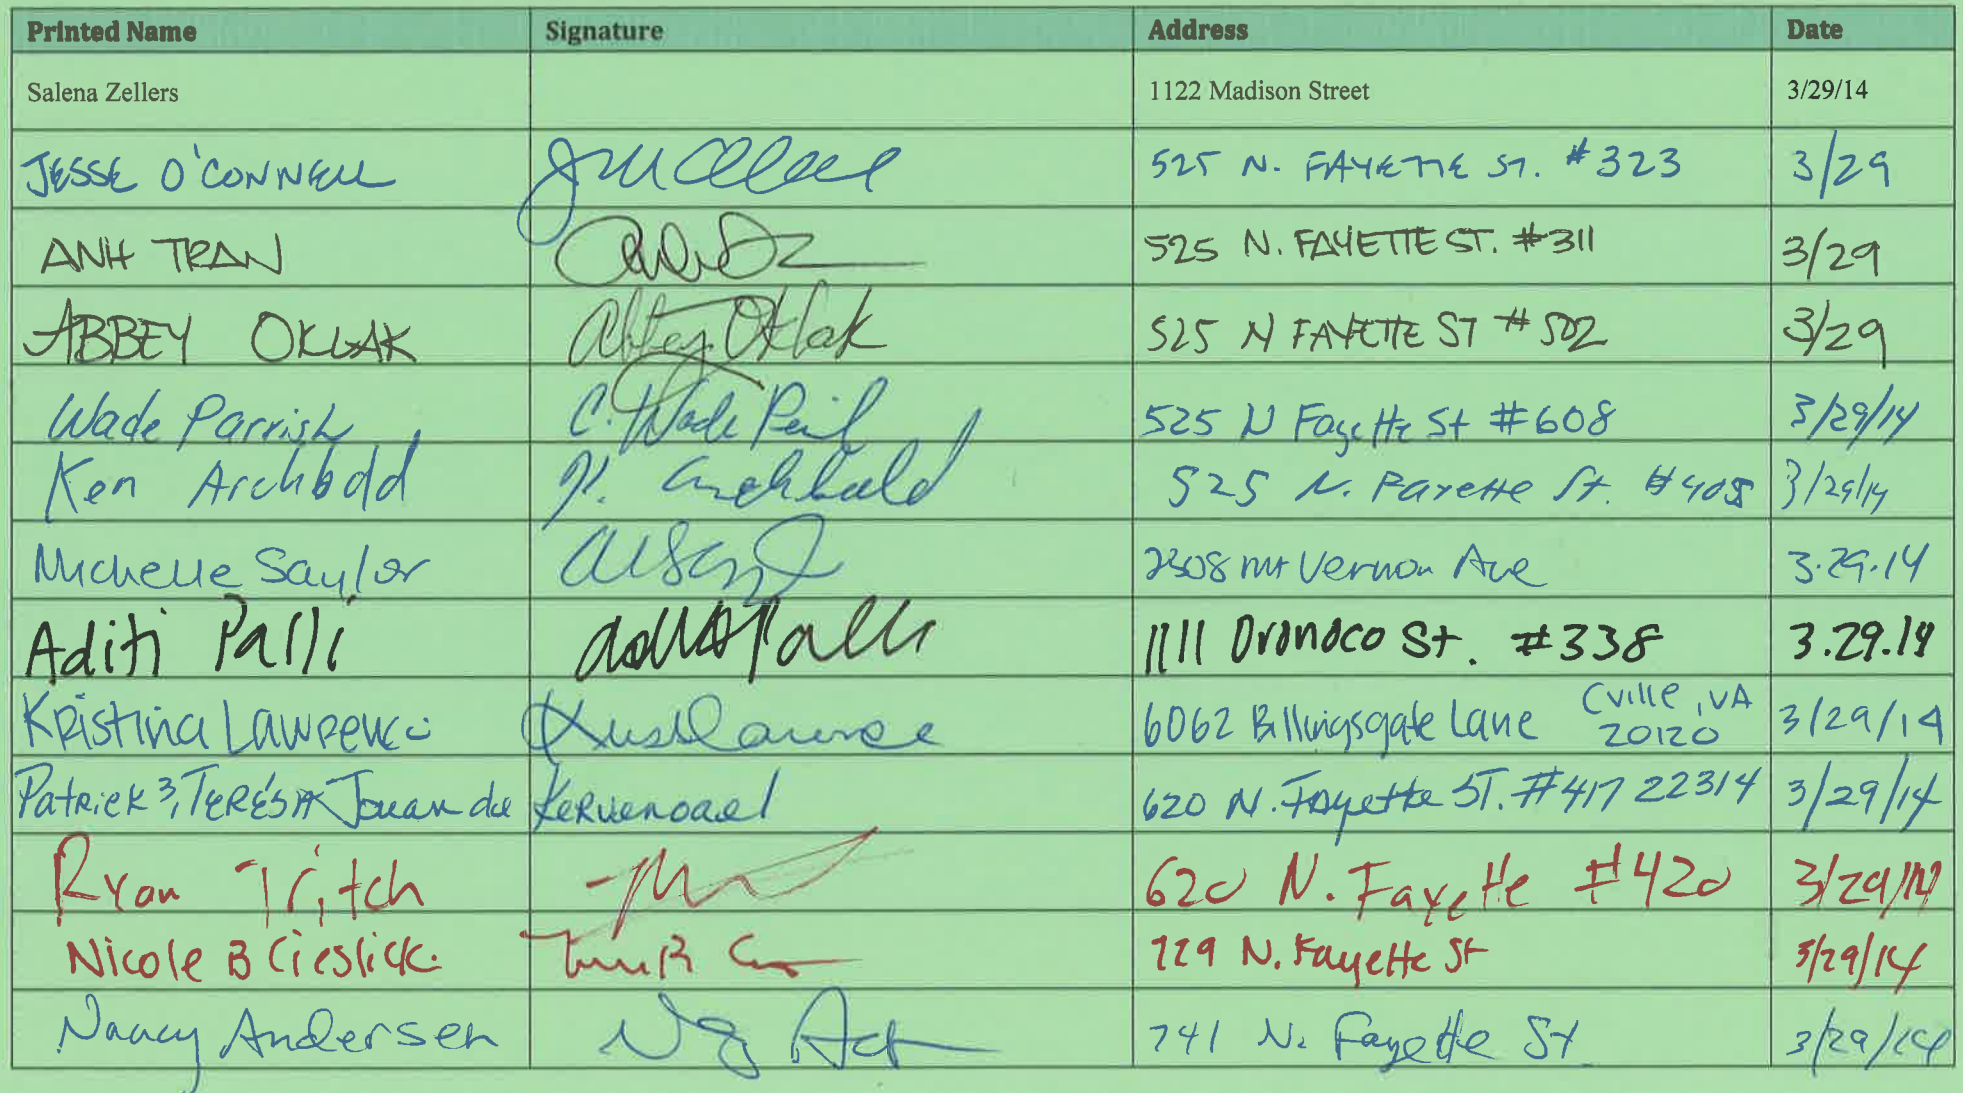 Printed Name Signature Address Date
Salena Zellers 1122 Madison Street 3/29/14
JESSE O'CONNELL 525 N. FAYETTE ST. #323 3/29
ANH TRAN 525 N. FAYETTE ST. #311 3/29
ABBEY OKLAK Abbey Oklak 525 N FAYETTE ST #502 3/29
Wade Parrish C. Wade 525 N Fayette St #608 3/29/14
Ken Archbold K. Archbald 525 N. Fayette St. #408 3/29/14
Michelle Saylor 2308 Mt Vernon Ave 3.29.14
Aditi Palli Palli 1111 Oronoco St. #338 3.29.14
Kristina Lawrence 6062 Billingsgate Lane Cville, VA 20120 3/29/14
Patrick & TERÉSA Jouan de Kervenoael 620 N. Fayette ST. #417 22314 3/29/14
Ryan Tritch 620 N. Fayette #420 3/29/14
Nicole B Cieslick 729 N. Fayette St 3/29/14
Nancy Andersen 741 N. Fayette St 3/29/14